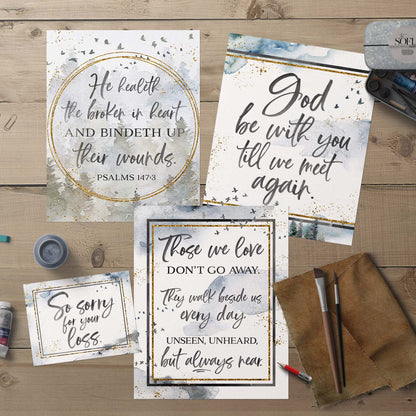 He healeth
the broken in heart,
AND BINDETH UP
their wounds.
PSALMS 147:3
God
be with you
till we meet
again
Those we love
DON'T GO AWAY.
They walk beside us
every day.
UNSEEN, UNHEARD,
but always near.
So sorry
for your
loss.